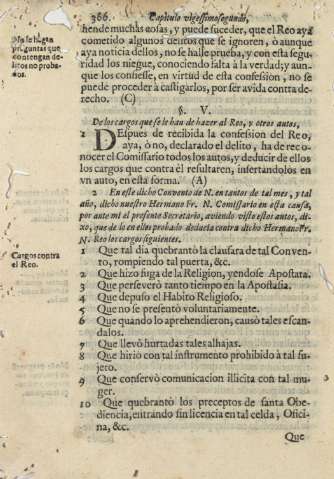 366. Capitulo vigessimosegundo,
No se hagan
preguntas que
contengan de-
litos no proba-
dos.
hende muchas cosas, y puede suceder, que el Reo aya
cometido algunos delitos que se ignoren, ò aunque
aya noticia dellos, no se halle prueba, y con esta segu-
ridad los niegue, conociendo falta à la verdad; y aun-
que los confiesse, en virtud de esta confession, no se
puede proceder à castigarlos, por ser avida contra de-
recho. (C)
§. V.
De los cargos que se le han de hazer al Reo, y otros autos.
1 DEspues de recibida la confession del Reo,
aya, ò no, declarado el delito, ha de reco-
nocer el Comissario todos los autos, y deducir de ellos
los cargos que contra èl resultaren, insertandolos en
vn auto, en esta forma. (A)
2 En este dicho Convento de N. en tantos de tal mes, y tal
año, dicho nuestro Hermano Fr. N. Comissario en esta causa,
por ante mi el presente Secretario, aviendo visto estos autos, di-
xo, que de lo en ellos probado deducia contra dicho Hermano Fr.
N. Reo los cargos siguientes.
Cargos contra
el Reo.
1 Que tal dia quebrantò la clausura de tal Conven-
to, rompiendo tal puerta, &c.
2 Que hizo fuga de la Religion, yendose Apostata.
3 Que perseverò tanto tiempo en la Apostasia.
4 Que depuso el Habito Religioso.
5 Que no se presentò voluntariamente.
6 Que quando lo aprehendieron, causò tales escan-
dalos.
7 Que llevò hurtadas tales alhajas.
8 Que hiriò con tal instrumento prohibido à tal su-
jeto.
9 Que conservò comunicacion illicita con tal mu-
ger.
10 Que quebrantò los preceptos de santa Obe-
diencia, entrando sin licencia en tal celda, Ofici-
na, &c.
Que